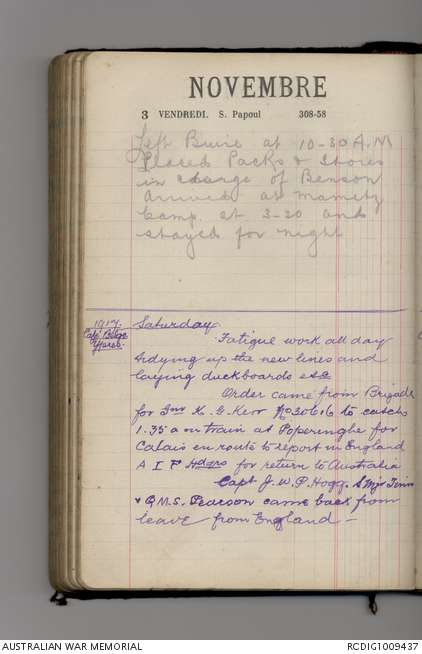 NOVEMBRE
3 VENDREDI. S. Papoul 308-58
Left Buire at 10-30 A.M
Placed Packs & Stores
in charge of Benson
Arrived at Mametz
Camp. at 3-20 and
stayed for night
1917. Saturday
Ypres.
Fatigue work all day
tidying up the new lines and
laying duckboards etc
Order came from Brigade
for K. G. Kerr No 30616 to catch
1.35 am train at Poperinghe for
Calais en route to report in England
A I F Hdqrs for return to Australia
Capt J. W. P. Hogg. S Mjr
& Q.M.S. Pearson came back from
leave from England —
AUSTRALIAN WAR MEMORIAL
RCDIG1009437